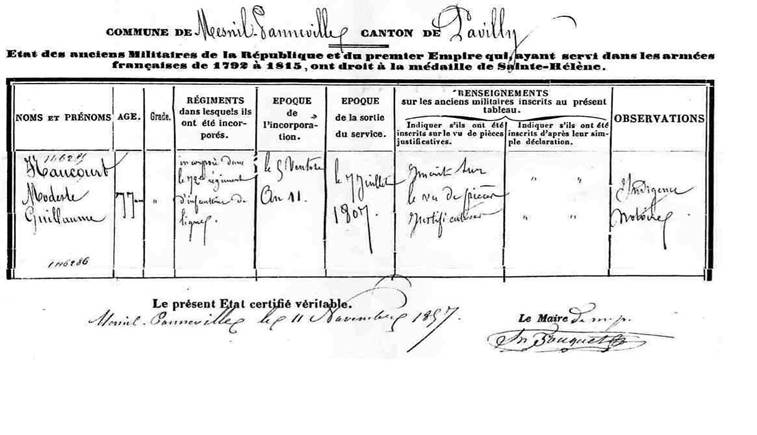 COMMUNE DE Mesnil-Panneville CANTON DE Pavilly
Etat des anciens Militaires de la République et du premier Empire qui, ayant servi dans les armées
françaises de 1792 à 1815, ont droit à la médaille de Sainte-Hélène.
NOMS ET PRÉNOMS
AGE.
Grade.
RÉGIMENTS
dans lesquels ils
ont été incor-
porés.
EPOQUE
de
l'incorpora-
tion.
EPOQUE
de la sortie
du service.
RENSEIGNEMENTS
sur les anciens militaires inscrits au présent
tableau.
Indiquer s'ils ont été
inscrits sur le vu de pièces
justificatives.
Indiquer s'ils ont été
inscrits d'après leur sim-
ple déclaration.
OBSERVATIONS
Haucourt
Modeste
Guillaume
1116286
77
"
incorporé dans
le 72e régiment
d'infanterie de
ligne.
le 5 Ventose
An 11.
le 7 juillet
1807
inscrit sur
le vu de pièces
justificatives
" "
" "
Indigence
notoire
Le présent Etat certifié véritable.
Mesnil-Panneville le 11 Novembre 1857.
Le Maire de m. p.
Bouquet